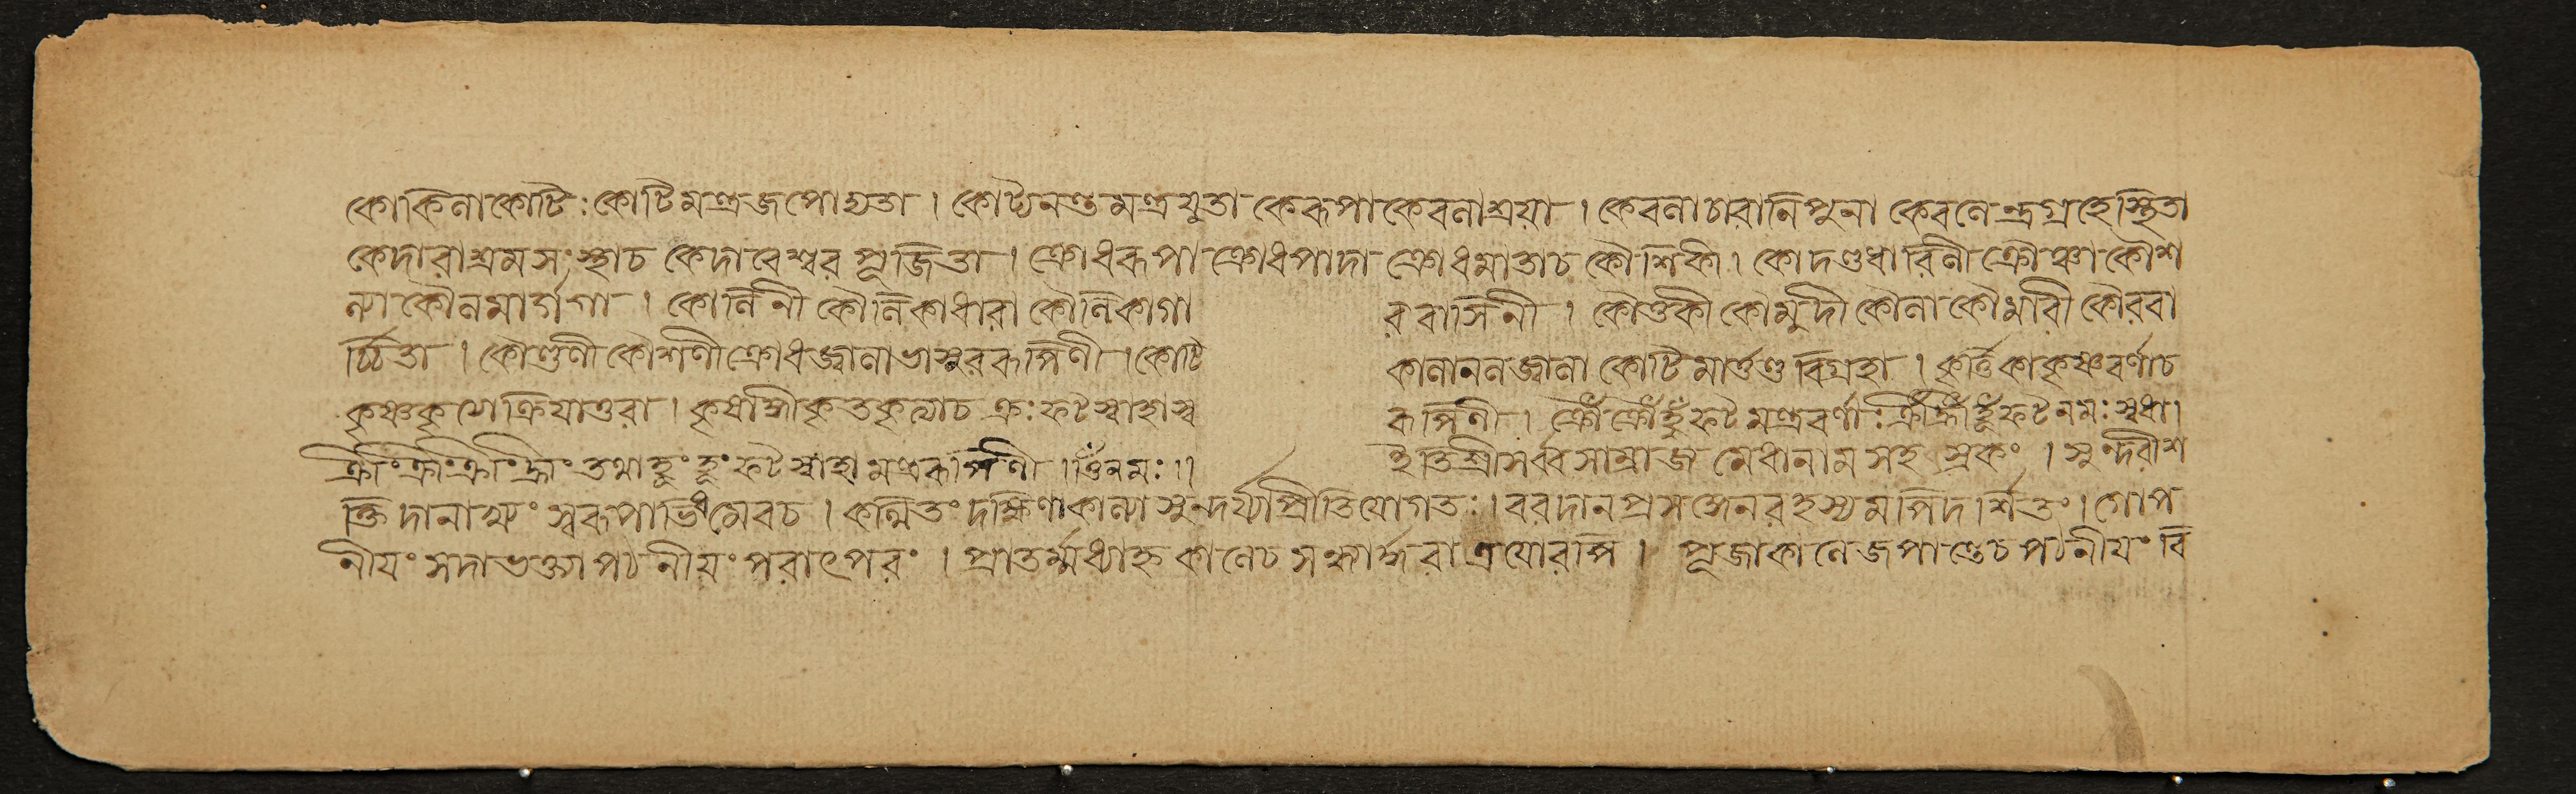 কোকিলাকোটিঃকোটিমন্ত্রজপোদ্যতা । কোট্যনন্তমন্ত্রযুতা কেরূপাকেবলাশ্রয়া । কেবলাচারানিপুনা কেবলেন্দ্রগ্রহেস্থিতা
কেদারাশ্রমসংস্থাচ কেদারেশ্বরপূজিতা । ক্রোধরূপা ক্রোধপাদা ক্রোধমাতাচ কৌশিকী । কোদণ্ডধারিনী ক্রৌঞ্চা কৌশ
ল্যা কৌলমার্গগা । কৌলিনী কৌলিকাধারা কৌলিকাগা রবাসিনী । কৌতুকী কৌমুদী কৌলা কৌমারী কৌরবা
র্চ্চিতা । কৌণ্ডিণী কৌশিণী ক্রোধজ্বালাভাসুররূপিণী । কোটি কালানলজ্বালা কোটিমার্ত্তণ্ডবিগ্রহা । কৃর্ত্তিকাকৃষ্ণবর্ণাচ
কৃষ্ণকৃত্যেক্রিয়াতুরা । কৃষাঙ্গীকৃতকৃত্যাচ ক্রঃফটস্বাহাস্ব রূপিণী । ক্রৌঁ ক্রৌঁ হুঁ ফট মন্ত্রবর্ণা ঃ ক্রীঁ হ্রীঁ হূঁ ফট নমঃ স্বধা ।
ক্রীংক্রীংক্রীংহ্রীং তথা হুং হূং ফটস্বাহা মন্ত্ররূপিণী । ওঁ নমঃ ।। ইতিশ্রীসর্ব্বসাম্রাজ মেধানামসহস্রকং । সুন্দরীশ
ক্তিদানাখ্যং স্বরূপাভিধমেবচ । কথিতং দক্ষিণাকাল্যা সুন্দর্য্যৈপ্রীতিযোগতঃ । বরদানপ্রসঙ্গেনরহস্যমপিদর্শিতং । গোপ
নীয়ংসদাভক্ত্যাপঠনীয়ংপরাৎপরং । প্রাতর্ম্মধ্যাহ্নকালেচ সন্ধ্যার্দ্ধরাত্রয়োরপি । পূজাকালেজপান্তেচপঠনীয়ং বি